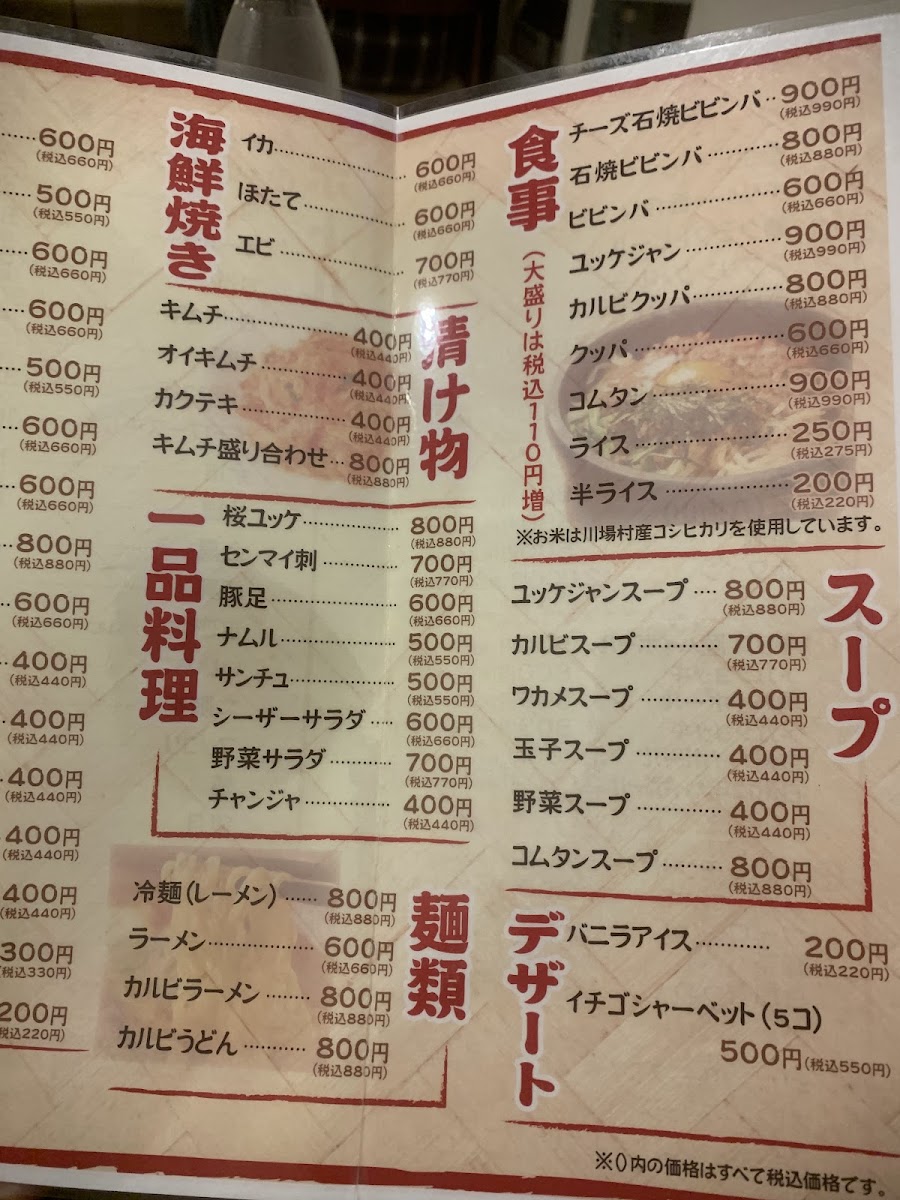 600円
(税込660円)
500円
(税込550円)
600円
(税込660円)
600円
(税込660円)
500円
(税込550円)
600円
(税込660円)
600円
(税込660円)
800円
(税込880円)
600円
(税込660円)
400円
(税込440円)
400円
(税込440円)
400円
(税込440円)
400円
(税込440円)
400円
(税込440円)
300円
(税込330円)
200円
(税込220円)
海鮮焼き
イカ 600円
(税込660円)
ほたて 600円
(税込660円)
エビ 700円
(税込770円)
漬け物
キムチ 400円
(税込440円)
オイキムチ 400円
(税込440円)
カクテキ 400円
(税込440円)
キムチ盛り合わせ 800円
(税込880円)
一品料理
桜ユッケ 800円
(税込880円)
センマイ刺 700円
(税込770円)
豚足 600円
(税込660円)
ナムル 500円
(税込550円)
サンチュ 500円
(税込550円)
シーザーサラダ 600円
(税込660円)
野菜サラダ 700円
(税込770円)
チャンジャ 400円
(税込440円)
麺類
冷麺(レーメン) 800円
(税込880円)
ラーメン 600円
(税込660円)
カルビラーメン 800円
(税込880円)
カルビうどん 800円
(税込880円)
食事
(大盛りは税込110円増)
チーズ石焼ビビンバ 900円
(税込990円)
石焼ビビンバ 800円
(税込880円)
ビビンバ 600円
(税込660円)
ユッケジャン 900円
(税込990円)
カルビクッパ 800円
(税込880円)
クッパ 600円
(税込660円)
コムタン 900円
(税込990円)
ライス 250円
(税込275円)
半ライス 200円
(税込220円)
※お米は川場村産コシヒカリを使用しています。
スープ
ユッケジャンスープ 800円
(税込880円)
カルビスープ 700円
(税込770円)
ワカメスープ 400円
(税込440円)
玉子スープ 400円
(税込440円)
野菜スープ 400円
(税込440円)
コムタンスープ 800円
(税込880円)
デザート
バニラアイス 200円
(税込220円)
イチゴシャーベット(5コ)
500円(税込550円)
※()内の価格はすべて税込価格です。